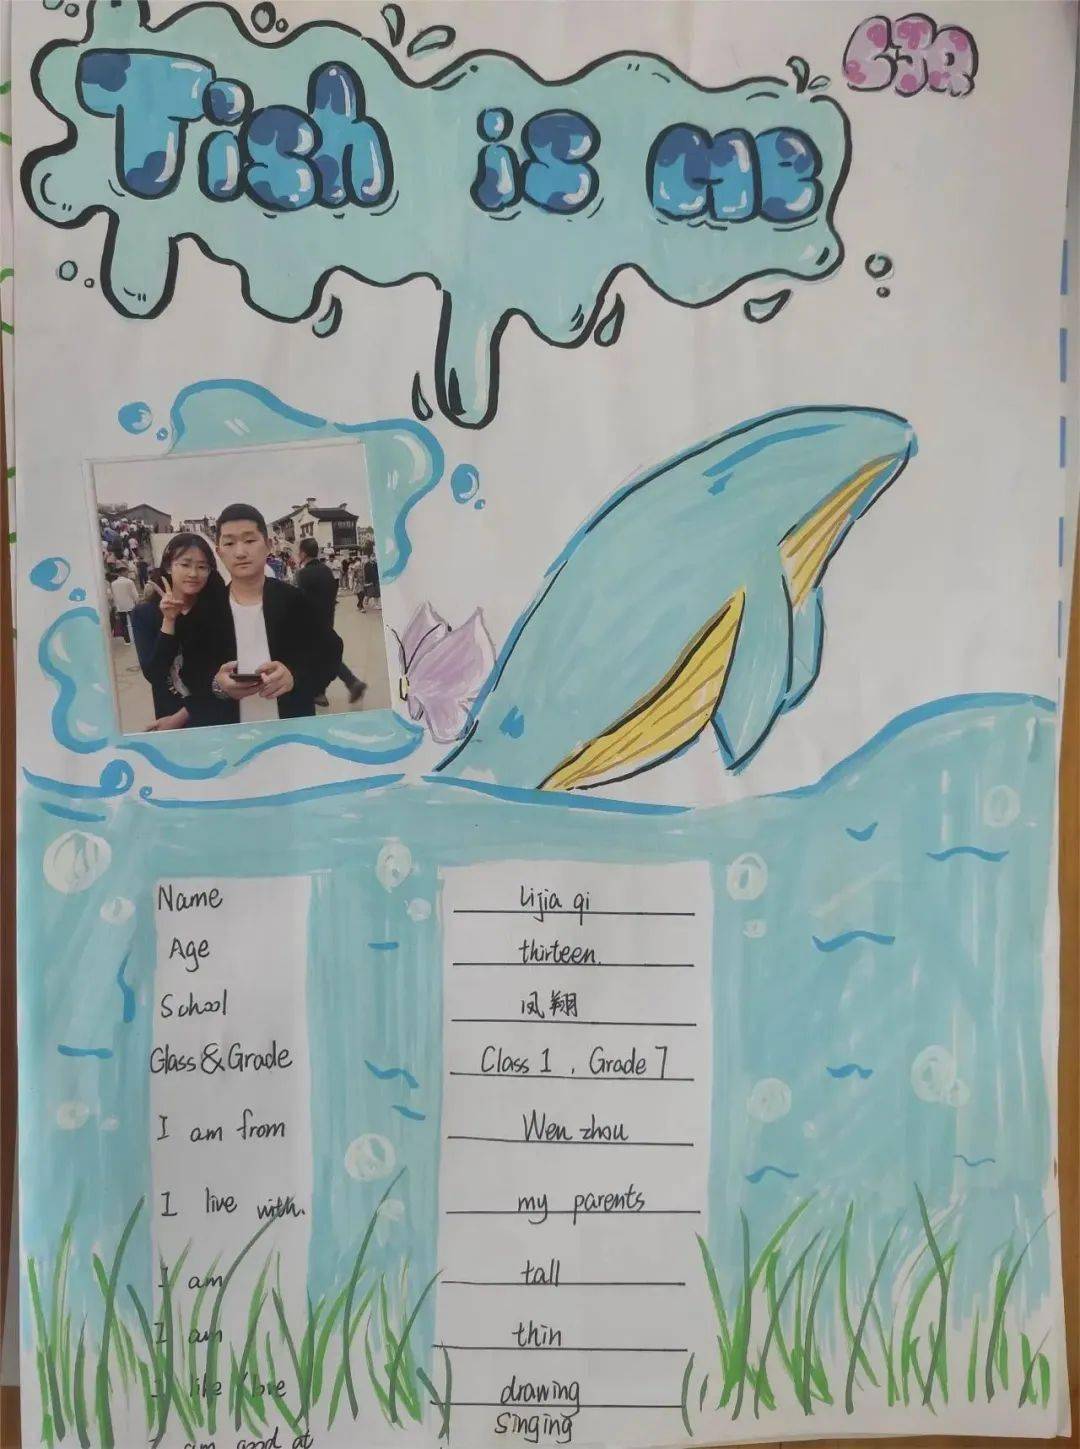 Tish is me
LJQ
Name lijia qi
Age thirteen.
School 凤翔
Glass&Grade Class 1 , Grade 7
I am from Wen zhou
I live with. my parents
I am tall
I am thin
I like/love drawing
singing
I am good at